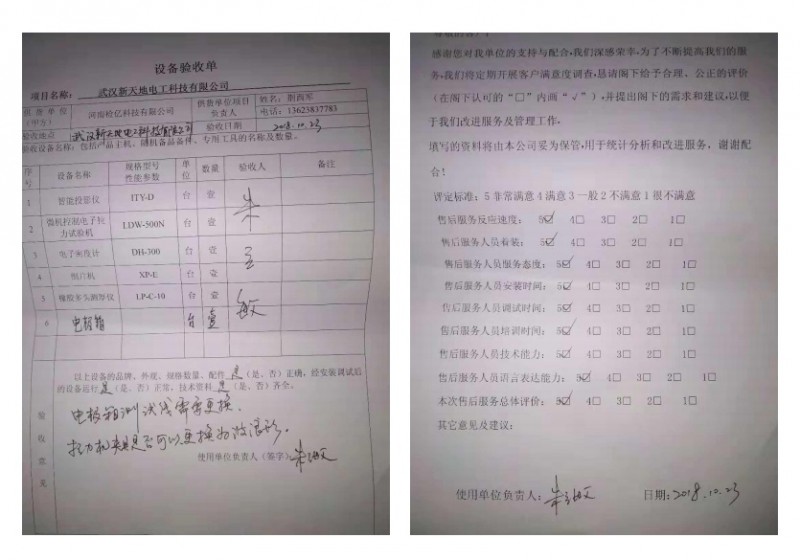 设备验收单
项目名称： 武汉新天地电工科技有限公司
供货单位（甲方） 河南检亿科技有限公司 供货单位项目负责人 姓名：荆西军
电话：13623837783
验收地点 武汉新天地电工科技有限公司 验收日期 2018.10.23
验收设备名称：包括产品主机、随机备品备件、专用工具的名称及数量。
序号 设备名称 规格型号性能参数 单位 数量 验收人 备注
1 智能投影仪 ITY-D 台 壹 朱
2 微机控制电子拉力试验机 LDW-500N 台 壹
3 电子密度计 DH-300 台 壹
4 削片机 XP-E 台 壹
5 橡胶多头测厚仪 LP-C-10 台 壹 敏
6 电极箱 台 壹
以上设备的品牌、外观、规格数量、配件 是（是、否）正确，经安装调试后
的设备运行 是（是、否）正常，技术资料 是（是、否）齐全。
验收意见
电极箱测试线需要更换。
拉力机夹具是否可以更换为波浪形。
使用单位负责人（签字）：
感谢您对我单位的支持与配合，我们深感荣幸，为了不断提高我们的服
务，我们将定期开展客户满意度调查，恳请阁下给予合理、公正的评价
（在阁下认可的“□”内画“√”），并提出阁下的需求和建议，以便
于我们改进服务及管理工作。
填写的资料将由本公司妥为保管，用于统计分析和改进服务，谢谢配
合！
评定标准：5 非常满意 4 满意 3 一般 2 不满意 1 很不满意
售后服务反应速度： 5☑ 4□ 3□ 2□ 1□
售后服务人员着装： 5☑ 4□ 3□ 2□ 1□
售后服务人员服务态度： 5☑ 4□ 3□ 2□ 1□
售后服务人员安装时间： 5☑ 4□ 3□ 2□ 1□
售后服务人员调试时间： 5☑ 4□ 3□ 2□ 1□
售后服务人员培训时间： 5☑ 4□ 3□ 2□ 1□
售后服务人员技术能力： 5☑ 4□ 3□ 2□ 1□
售后服务人员语言表达能力： 5☑ 4□ 3□ 2□ 1□
本次售后服务总体评价： 5☑ 4□ 3□ 2□ 1□
其它意见及建议：
使用单位负责人： 日期：2018.10.23